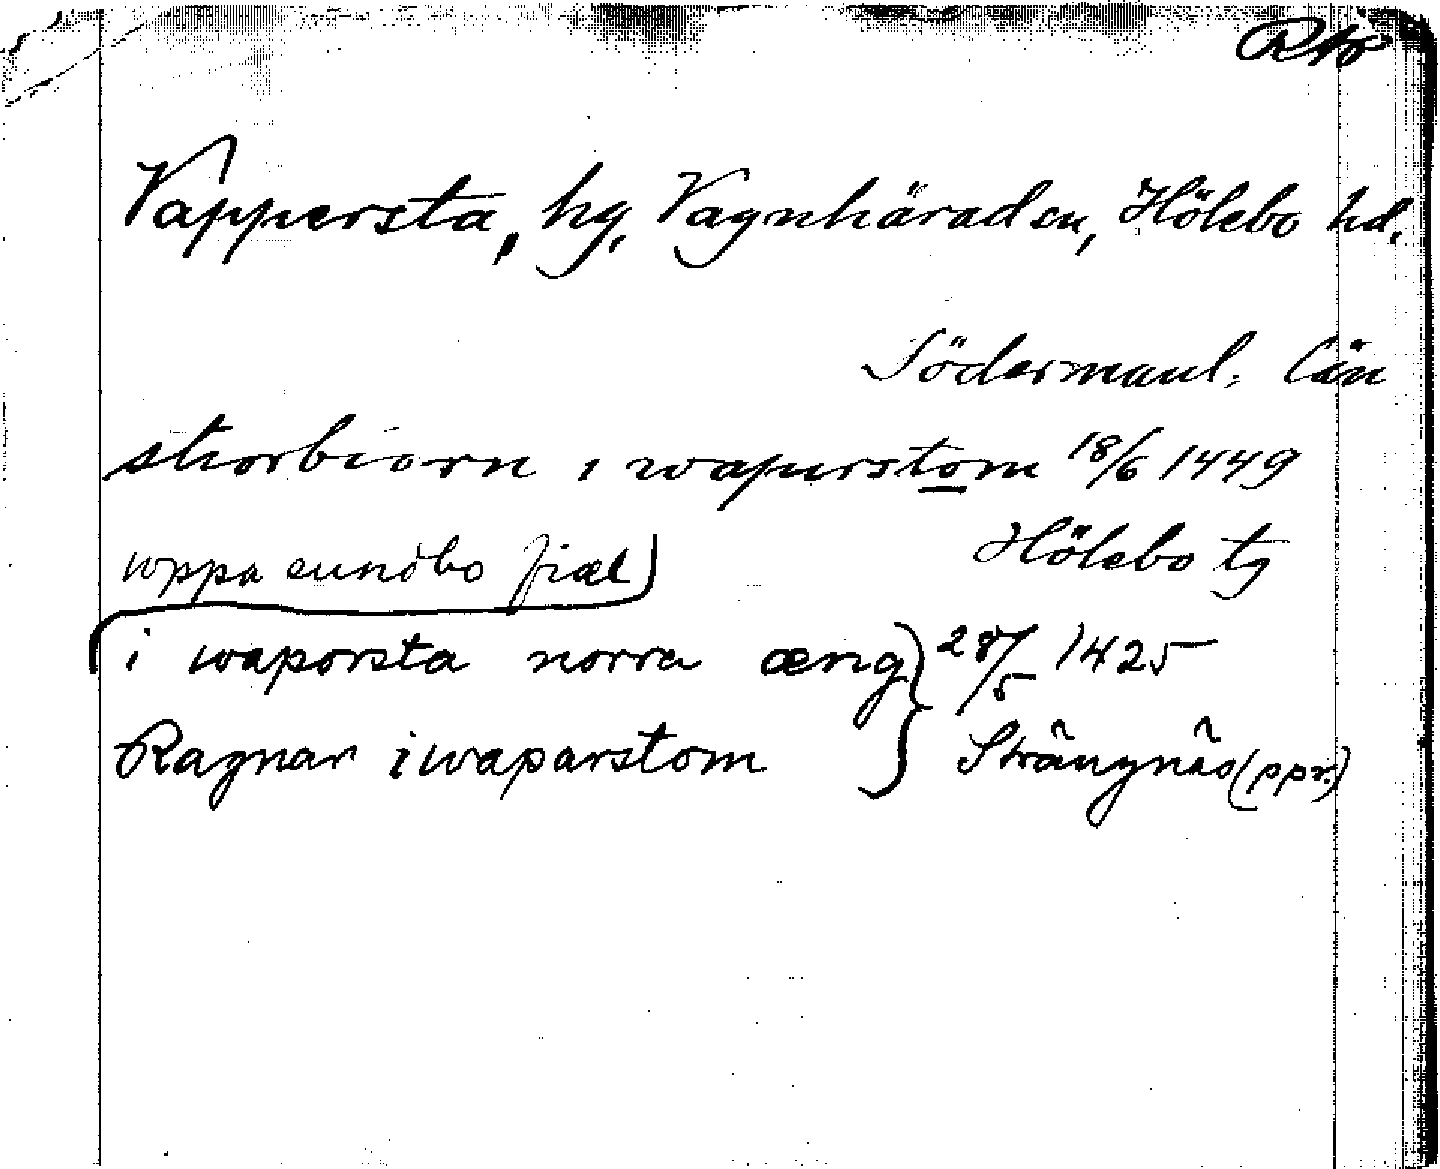 Vappersta, hg, Vagnhäradsn, Hölebo hd.
Södermanl. län
thorbiorn i wapurstom 18/6 1449
Hölebo tg
wppa sundbo fiæl
i waporsta norra æng 28/5 1425
Ragnar i waparstom Strängnäs (ppr.)